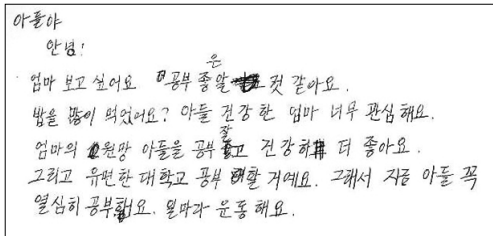 아들야
안녕!
엄마 보고 싶어요 공부 좋은 알 것 같아요.
밥을 많이 먹었어요? 아들 건강한 엄마 너무 관심해요.
엄마의 원망 아들을 공부 잘 건강하 더 좋아요.
그리고 유편한 대학교 공부 할 거예요. 그래서 지금 아들 꼭
열심히 공부해요. 얼마라 운동해요.